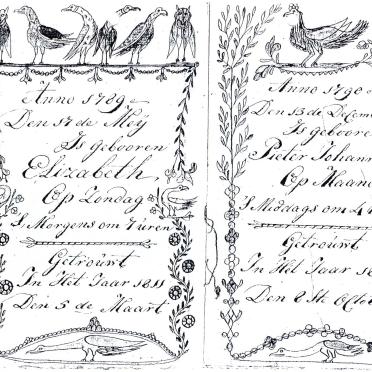 Anno 1789
Den 17 de Meÿ
Is gebooren
Elizabeth,
Op Zondag
S Morgens om 7 uren
Getroúwt
In Het Jaar 1811
Den 5 de Maart
Anno 1790
Den 13 de Decem
Is geboore
Pieter Johann
Op Maand
S Middags om 4
Getroúw
In Het Jaar 18
Den 8 Ste Octo